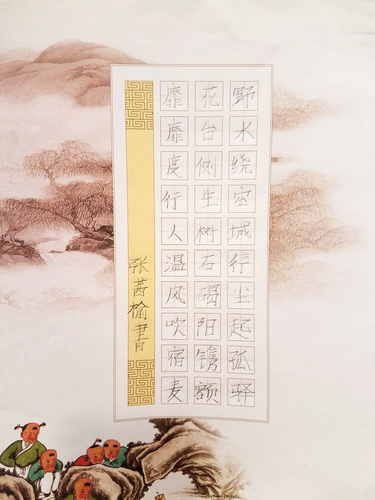 野水绕空城行尘起孤驿
花台侧生树石碣阳镌额
靡靡度行人温风吹宿麦
张茜榆书